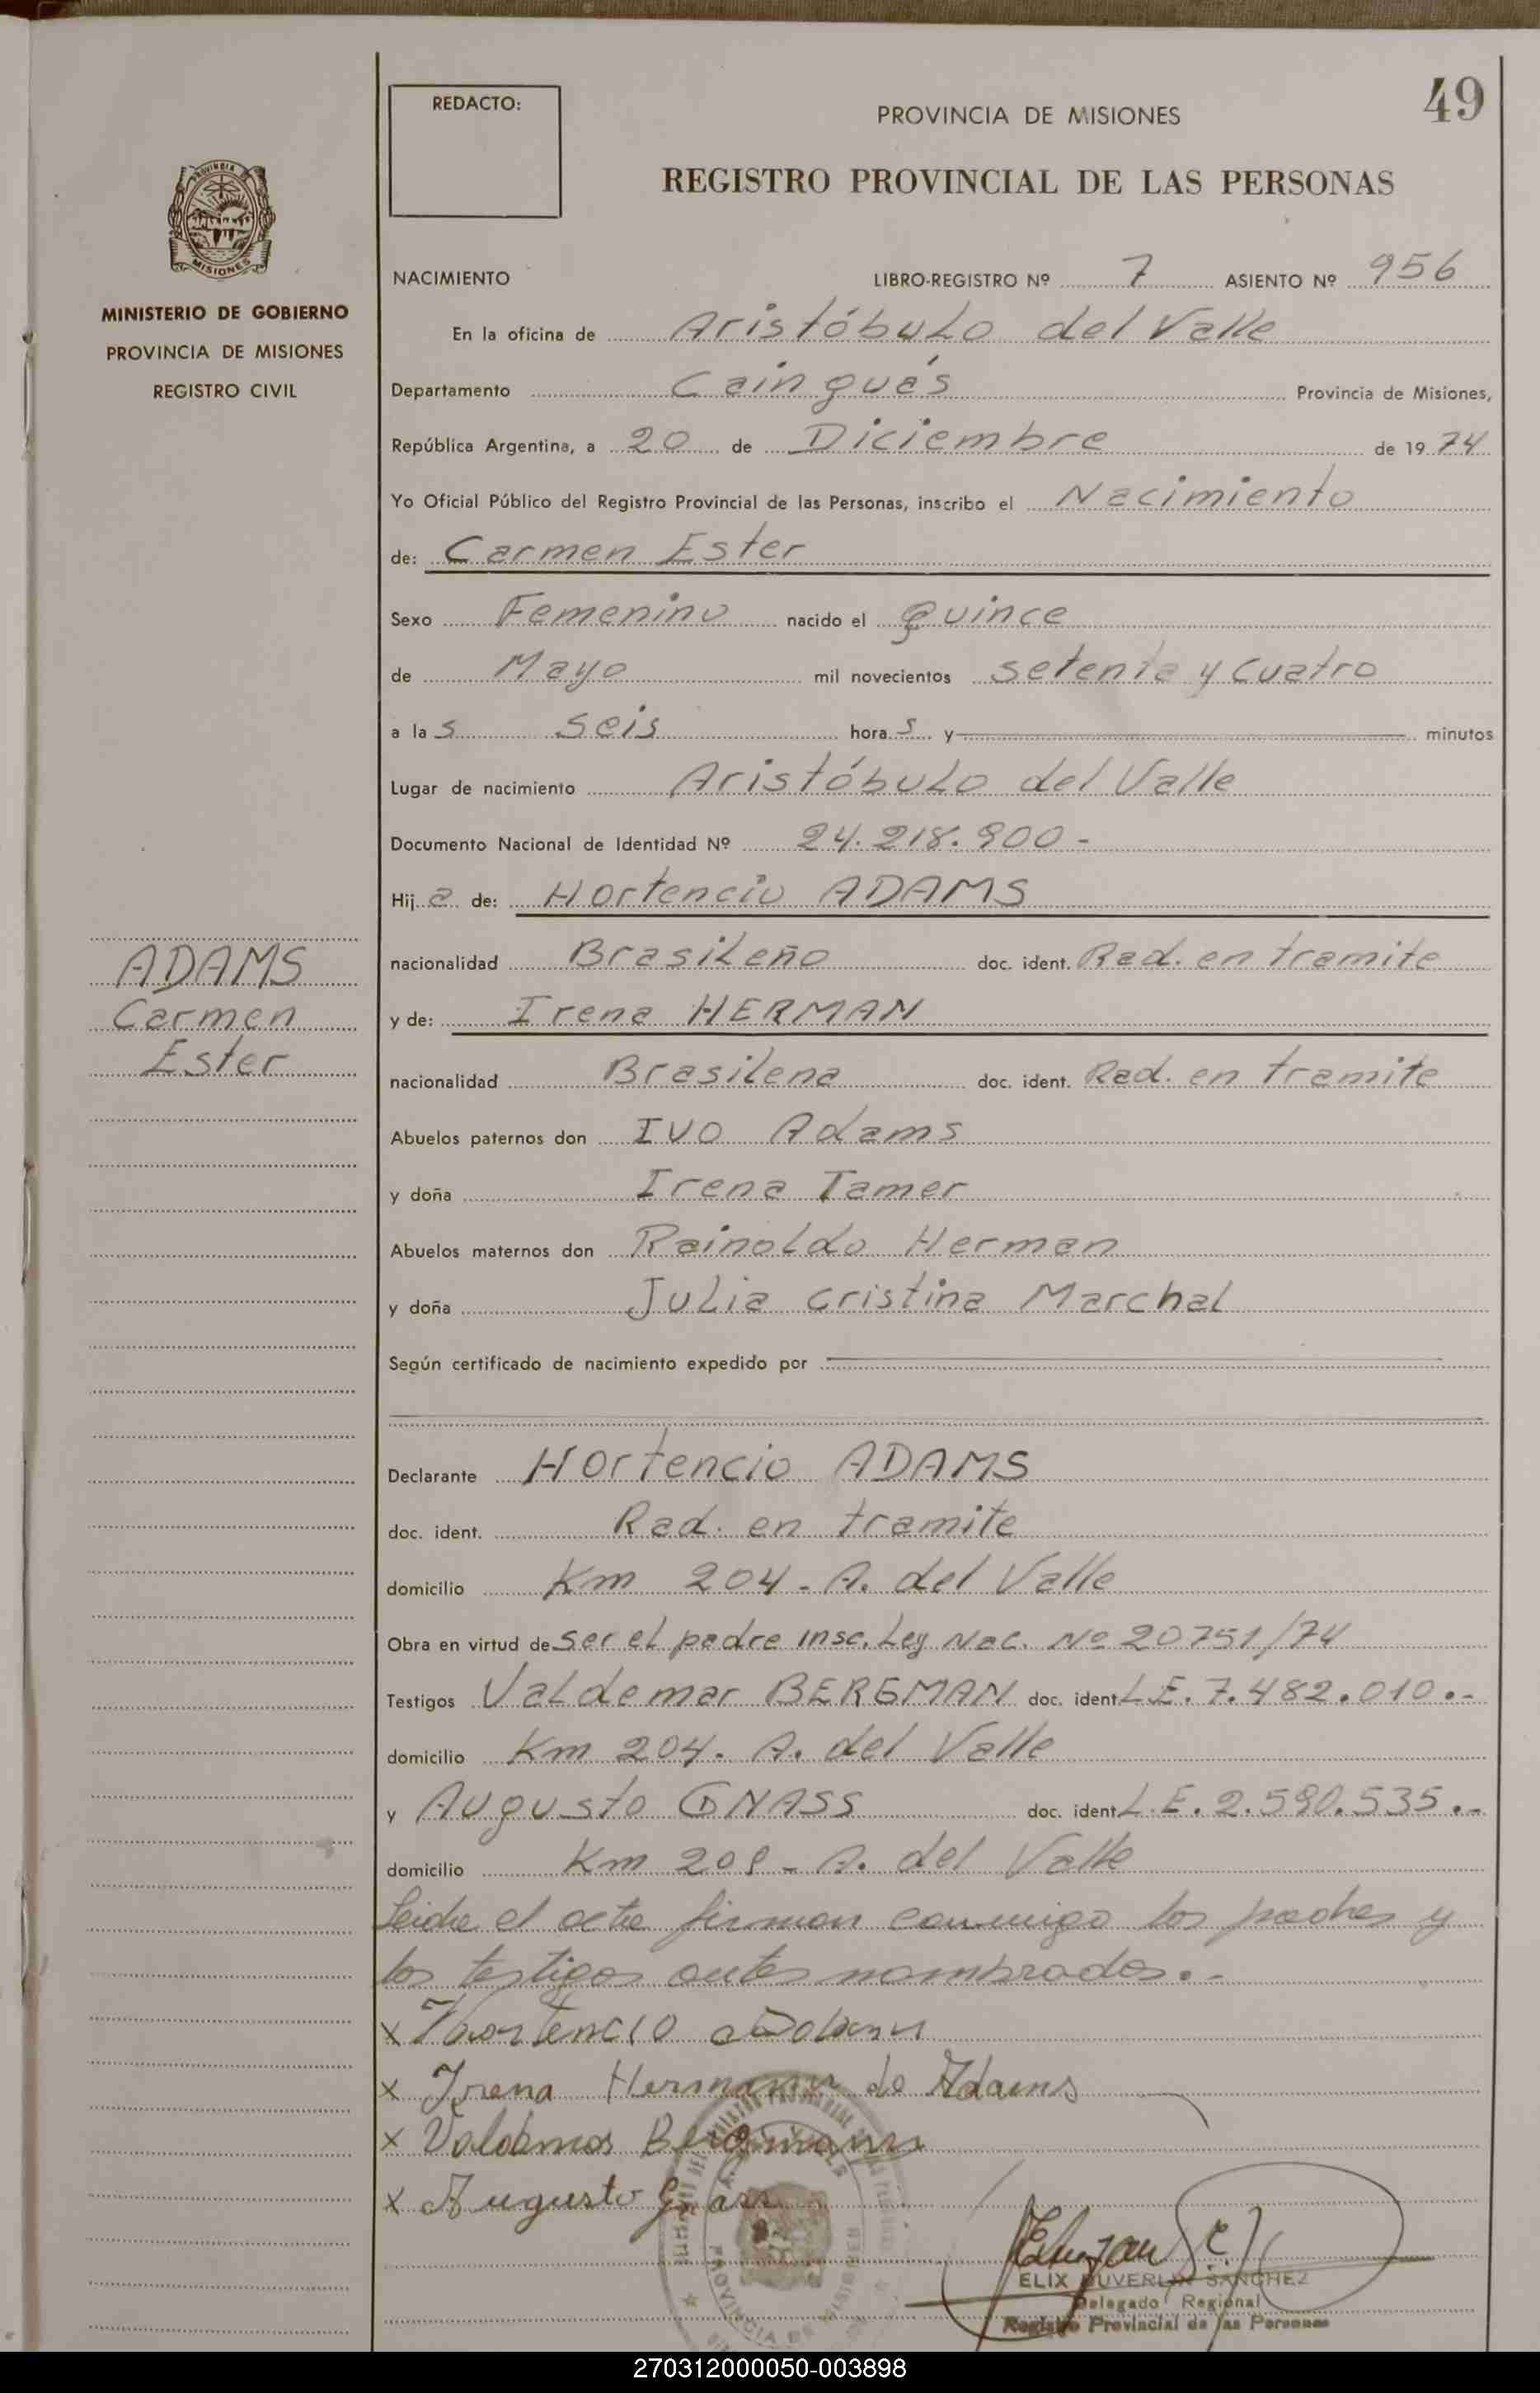 49
REDACTO:
PROVINCIA DE MISIONES
REGISTRO PROVINCIAL DE LAS PERSONAS
PROVINCIA DE
MISIONES
MINISTERIO DE GOBIERNO
PROVINCIA DE MISIONES
REGISTRO CIVIL
NACIMIENTO LIBRO-REGISTRO Nº 7 ASIENTO Nº 956
En la oficina de Aristóbulo del Valle
Departamento Cainguás Provincia de Misiones,
República Argentina, a 20 de Diciembre de 1974
Yo Oficial Público del Registro Provincial de las Personas, inscribo el Nacimiento
de: Carmen Ester
Sexo Femenino nacido el Quince
de Mayo mil novecientos setenta y cuatro
a las seis horas y minutos
Lugar de nacimiento Aristóbulo del Valle
Documento Nacional de Identidad Nº 24.218.900-
Hija de: Hortencio ADAMS
nacionalidad Brasileño doc. ident. Rad. en tramite
y de: Irena HERMAN
nacionalidad Brasilena doc. ident. Rad. en tramite
Abuelos paternos don IVO Adams
y doña Irena Tamer
Abuelos maternos don Rainoldo Herman
y doña Julia Cristina Marchal
Según certificado de nacimiento expedido por
ADAMS
Carmen
Ester
Declarante Hortencio ADAMS
doc. ident. Rad. en tramite
domicilio Km 204 - A. del Valle
Obra en virtud de ser el padre insc. Ley Nac. Nº 20751/74
Testigos Valdemar BERGMAN doc. ident L.E. 7.482.010.-
domicilio Km 204. A. del Valle
y Augusto GNASS doc. ident L.E. 2.590.535.-
domicilio Km 209 - A. del Valle
Leida el acta firman conmigo los padres y
los testigos antes nombrados.-
x Hortencio
x Irena Hermann de Adams
x Valdemar Bergmann
x Augusto Gnass
ELIX DUVERLIN SANCHEZ
Delegado Regional
Registro Provincial de las Personas
PROVINCIA DE MISIONES
270312000050-003898